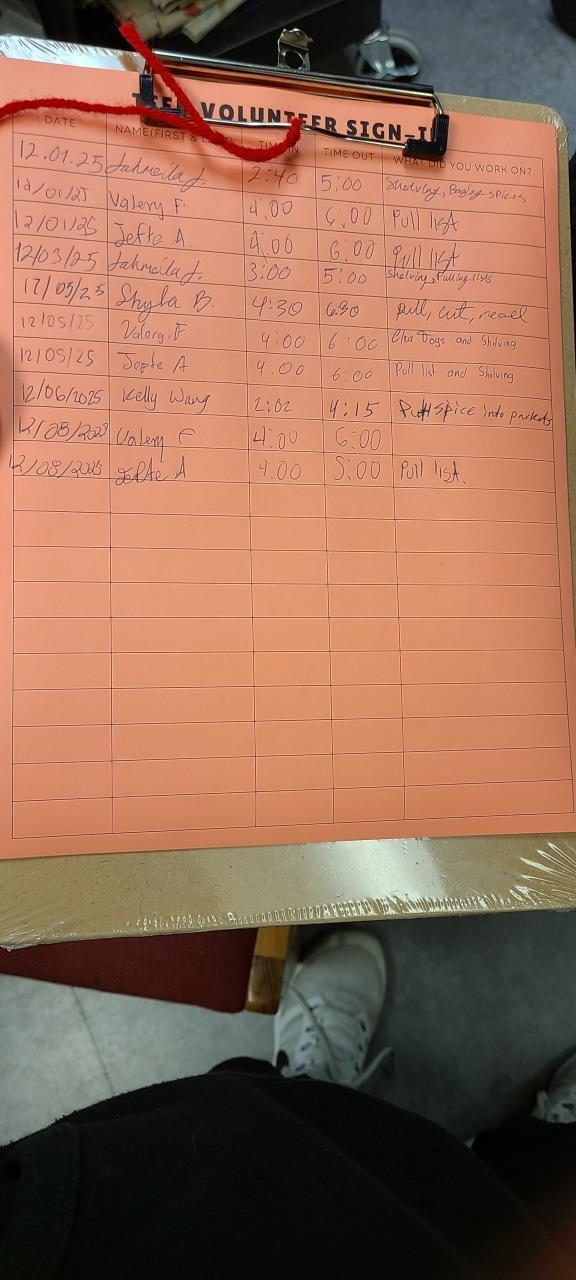 TEEN VOLUNTEER SIGN-IN
DATE NAME (FIRST & LAST) TIME IN TIME OUT WHAT DID YOU WORK ON?
12.01.25 Jahmeila J. 2:40 5:00 Shelving, Baging spices
12/01/25 Valery F. 4:00 6:00 Pull list
12/01/25 Jefte A. 4:00 6:00 Pull list
12/03/25 Jahmeila J. 3:00 5:00 Shelving, Pulling lists
12/05/25 Shyla B. 4:30 6:30 pull, cut, read
12/05/25 Valery.F 4:00 6:00 Toys and Shelving
12/05/25 Jefte A 4:00 6:00 Pull list and Shelving
12/06/2025 Kelly Wang 2:02 4:15 Put spice into packets
12/08/2023 Valery F 4:00 6:00
12/08/2025 Jefte A 4:00 5:00 Pull list.